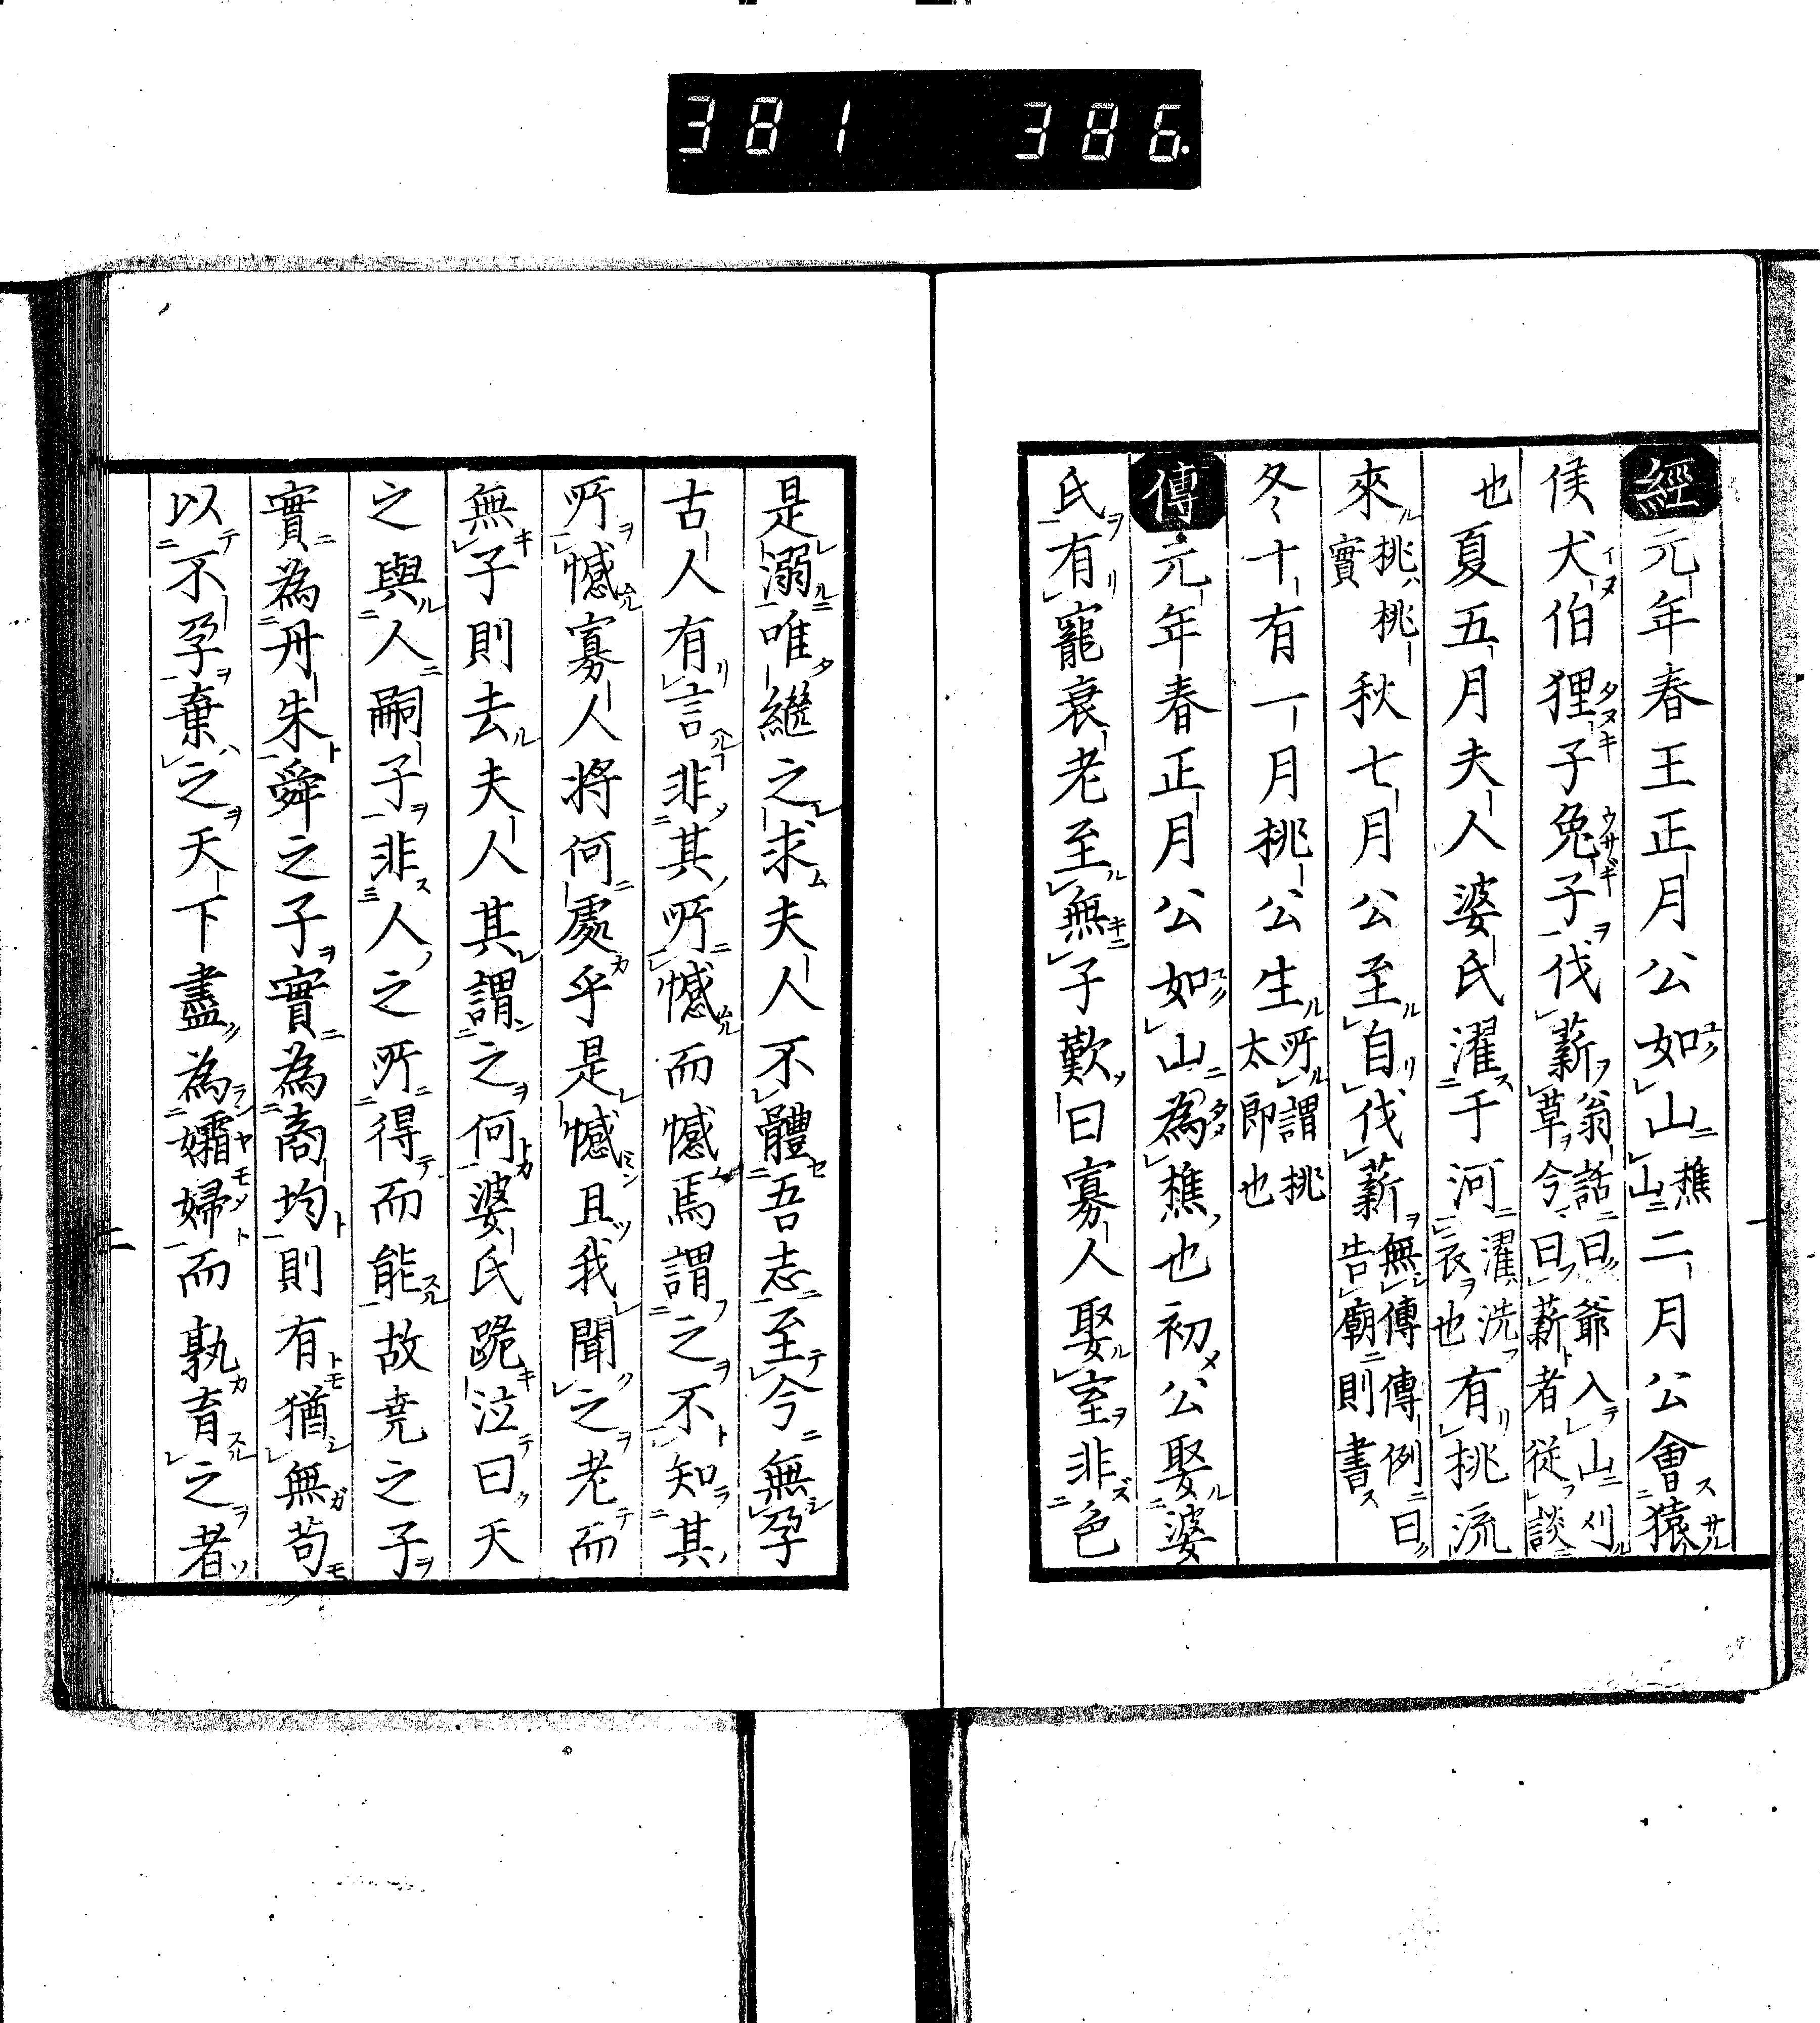 381 386.
經元年春王正月公如山樵山二月公會猿
侯犬伯狸子兔子伐薪翁話曰爺入山刈草今曰薪者從談
也夏五月夫人婆氏濯于河濯洗衣也有桃流
來桃桃實秋七月公至自伐薪無傳傳例曰告廟則書
冬十有一月桃公生所謂桃太郎也
傳元年春正月公如山為樵也初公娶婆
氏有寵衰老至無子歎曰寡人娶室非色
是溺唯繼之求夫人不體吾志至今無孕
古人有言非其所憾而憾焉謂之不知其
所憾寡人將何處乎是憾且我聞之老而
無子則去夫人其謂之何婆氏跪泣曰天
之與人嗣子非人之所得而能故堯之子
實為丹朱舜之子實為商均則有猶無苟
以不孕棄之天下盡為孀婦而孰育之者
一
二